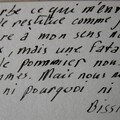 rbe ce qui m'enn
e restitue comme j
re à mon sens no
, mais une fata
te pommier nou
mes. Mais nous n
ni pourquoi ni
Bissi